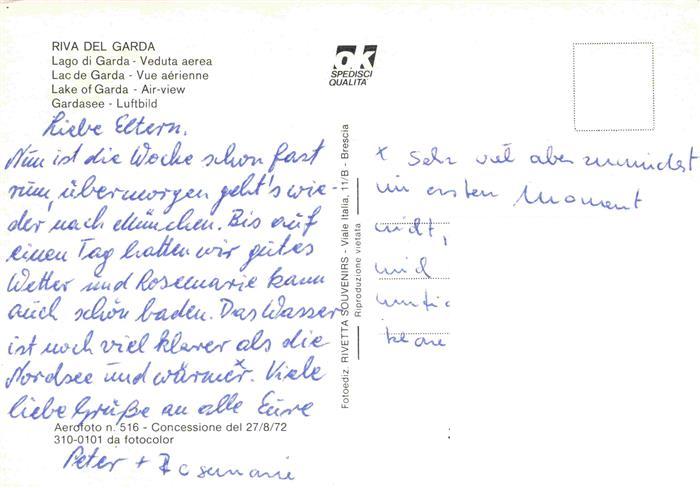 RIVA DEL GARDA
Lago di Garda - Veduta aerea
Lac de Garda - Vue aérienne
Lake of Garda - Air-view
Gardasee - Luftbild
ok
SPEDISCI
QUALITÀ
Liebe Eltern,
Nun ist die Woche schon fast
rum, übermorgen geht's wie-
der nach München. Bis auf
einen Tag hatten wir gutes
Wetter und Rosemarie kann
auch schön baden. Das Wasser
ist noch viel klarer als die
Nordsee und wärmer*. Viele
liebe Grüße an alle Eure
Peter + Rosemarie
Aerofoto n. 516 - Concessione del 27/8/72
310-0101 da fotocolor
Fotoediz. RIVETTA SOUVENIRS - Viale Italia, 11/B - Brescia
Riproduzione vietata
* Sehr viel aber zumindest
im ersten Moment
nicht,